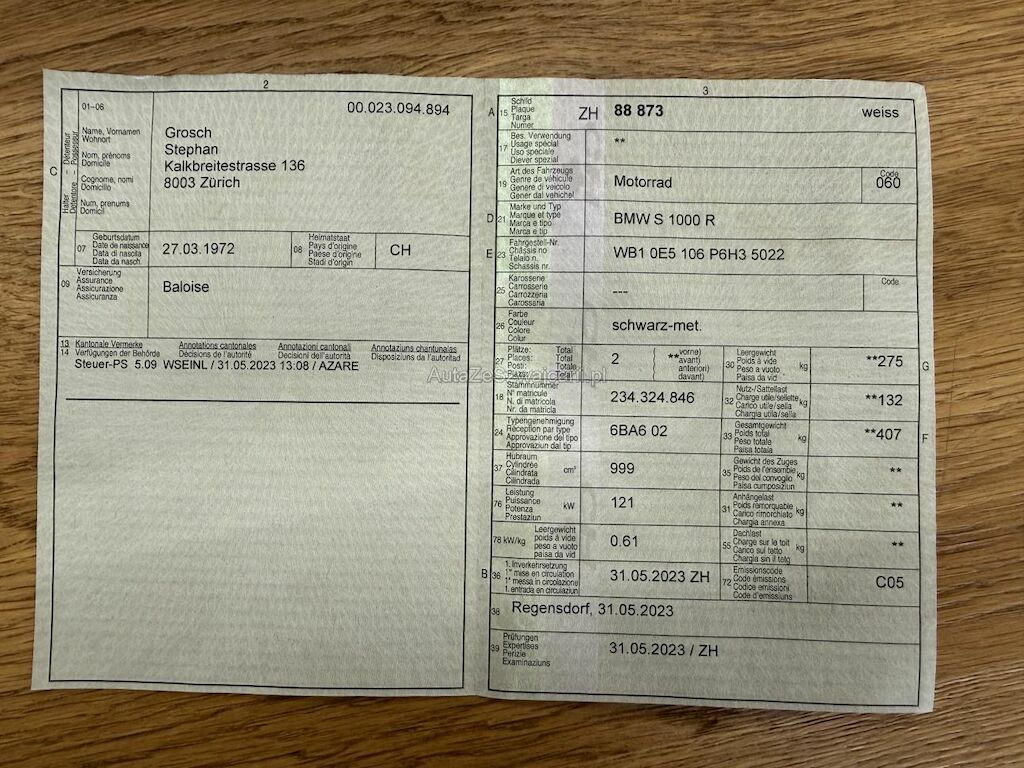 2
01–06
00.023.094.894
C
Halter – Détenteur
Detentore – Possessur
Name, Vornamen
Wohnort
Nom, prénoms
Domicile
Cognome, nomi
Domicilio
Num, prenums
Domicil
Grosch
Stephan
Kalkbreitestrasse 136
8003 Zürich
07
Geburtsdatum
Date de naissance
Data di nascita
Data da nasch.
27.03.1972
08
Heimatstaat
Pays d'origine
Paese d'origine
Stadi d'origin
CH
09
Versicherung
Assurance
Assicurazione
Assicuranza
Baloise
13
14
Kantonale Vermerke
Verfügungen der Behörde
Annotations cantonales
Décisions de l'autorité
Annotazioni cantonali
Decisioni dell'autorità
Annotaziuns chantunalas
Disposiziuns da l'autoritad
Steuer-PS 5.09 WSEINL / 31.05.2023 13:08 / AZARE
3
A 15
Schild
Plaque
Targa
Numer
ZH 88 873 weiss
17
Bes. Verwendung
Usage spécial
Uso speciale
Diever spezial
**
19
Art des Fahrzeugs
Genre de véhicule
Genere di veicolo
Gener dal vehichel
Motorrad
Code
060
D 21
Marke und Typ
Marque et type
Marca e tipo
Marca e tip
BMW S 1000 R
E 23
Fahrgestell-Nr.
Châssis no
Telaio n.
Schassis nr.
WB1 0E5 106 P6H3 5022
25
Karosserie
Carrosserie
Carrozzeria
Carossaria
---
Code
26
Farbe
Couleur
Colore
Colur
schwarz-met.
27
Plätze: Total
Places: Total
Posti: Totale
Total
2
**
vorne)
avant)
anteriori)
davant)
30
Leergewicht
Poids à vide
Peso a vuoto
Paisa da vid
kg
**275
G
AutaZeSzwajcarii.pl
18
Stammnummer
N° matricule
N. di matricola
Nr. da matricla
234.324.846
32
Nutz-/Sattellast
Charge utile/sellette
Carico utile/sella
Chargia utila/sella
kg
**132
24
Typengenehmigung
Réception par type
Approvazione del tipo
Approvaziun dal tip
6BA6 02
33
Gesamtgewicht
Poids total
Peso totale
Paisa totala
kg
**407
F
37
Hubraum
Cylindrée
Cilindrata
Cilindrada
cm³
999
35
Gewicht des Zuges
Poids de l'ensemble
Peso del convoglio
Paisa cumposiziun
kg
**
76
Leistung
Puissance
Potenza
Prestaziun
kW
121
31
Anhängelast
Poids remorquable
Carico rimorchiato
Chargia annexa
kg
**
78 kW/kg
Leergewicht
poids à vide
peso a vuoto
paisa da vid
0.61
55
Dachlast
Charge sur le toit
Carico sul tetto
Chargia sin il tetg
kg
**
B 36
1. Inverkehrsetzung
1re mise en circulation
1a messa in circolazione
1. entrada en circulaziun
31.05.2023 ZH
72
Emissionscode
Code émissions
Codice emissioni
Code d'emissiuns
C05
38
Regensdorf, 31.05.2023
39
Prüfungen
Expertises
Perizie
Examinaziuns
31.05.2023 / ZH